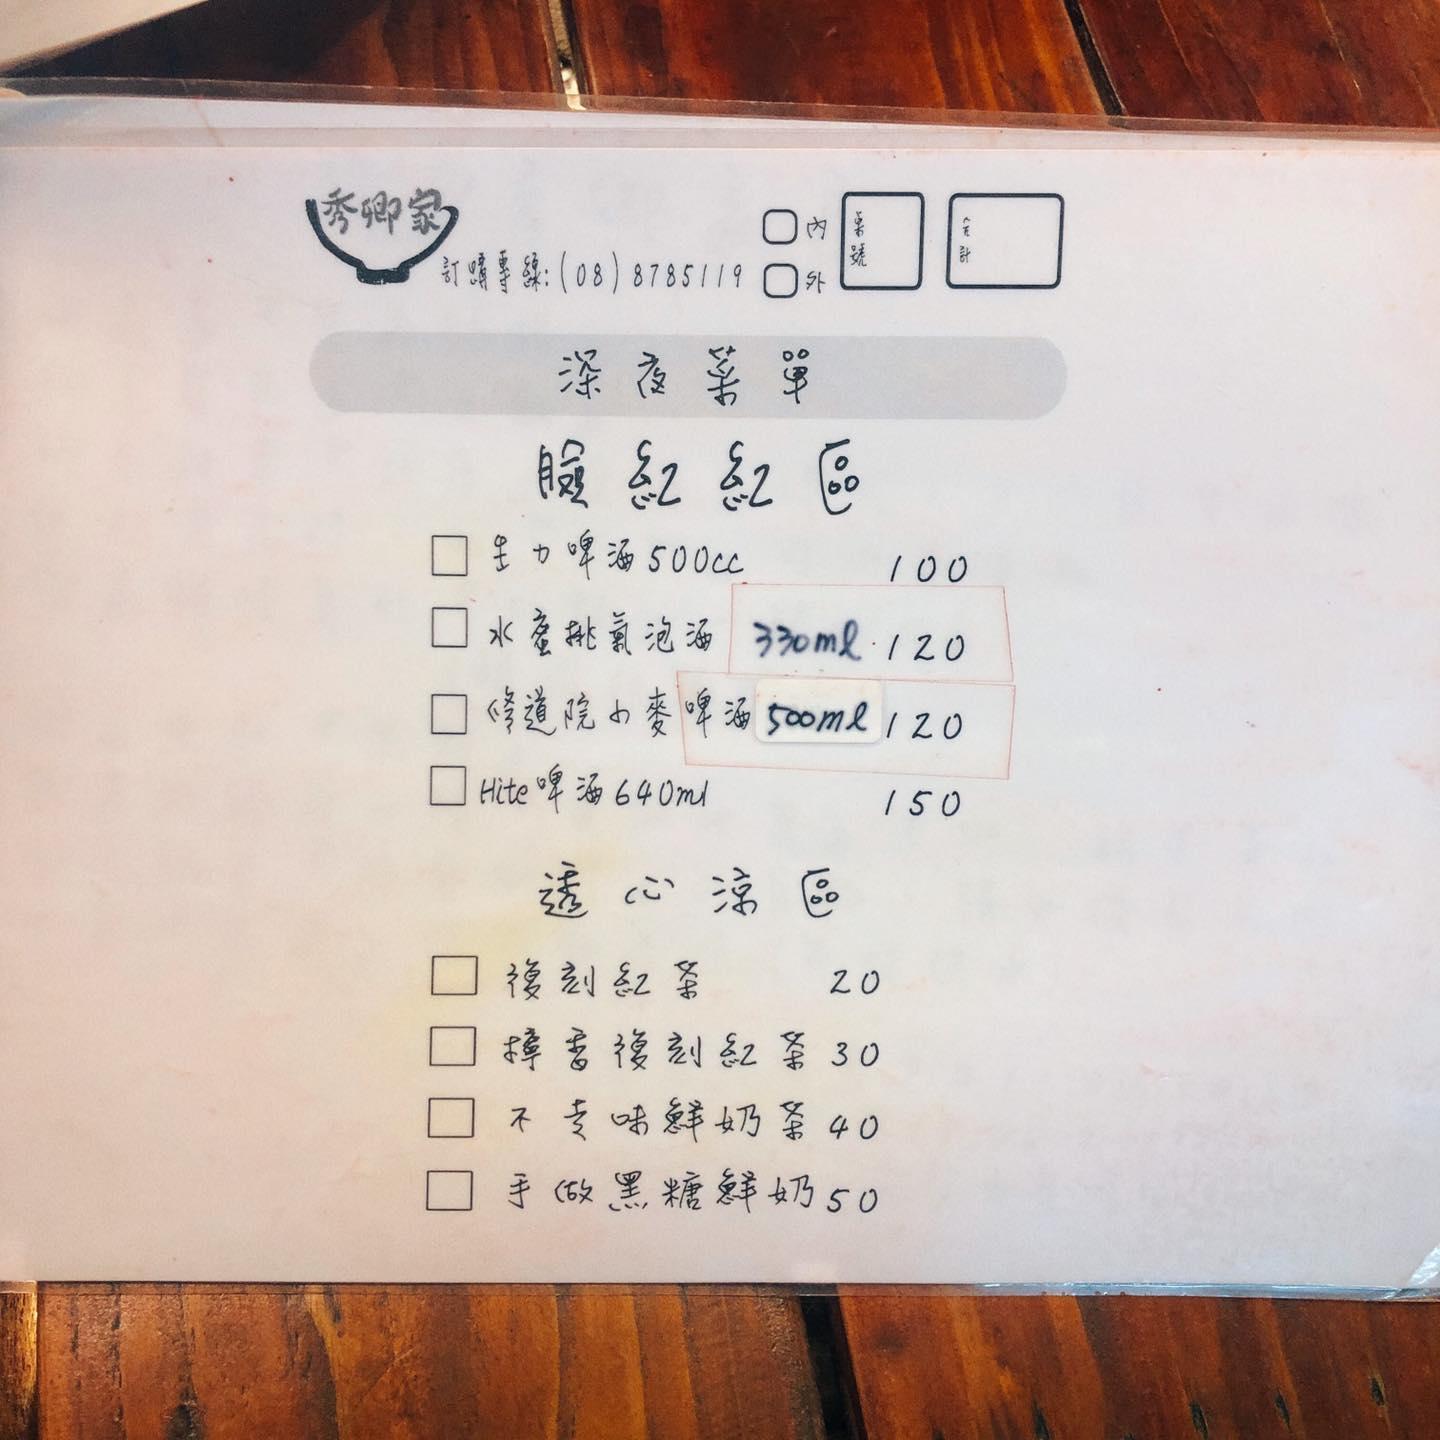 秀卿家
訂購專線:(08)8785119
內
外
桌號
合計
深夜菜單
臉紅紅區
生力啤酒500cc 100
水蜜桃氣泡酒 330ml 120
修道院小麥啤酒 500ml 120
Hite啤酒640ml 150
透心涼區
復刻紅茶 20
樟香復刻紅茶 30
不走味鮮奶茶 40
手做黑糖鮮奶 50